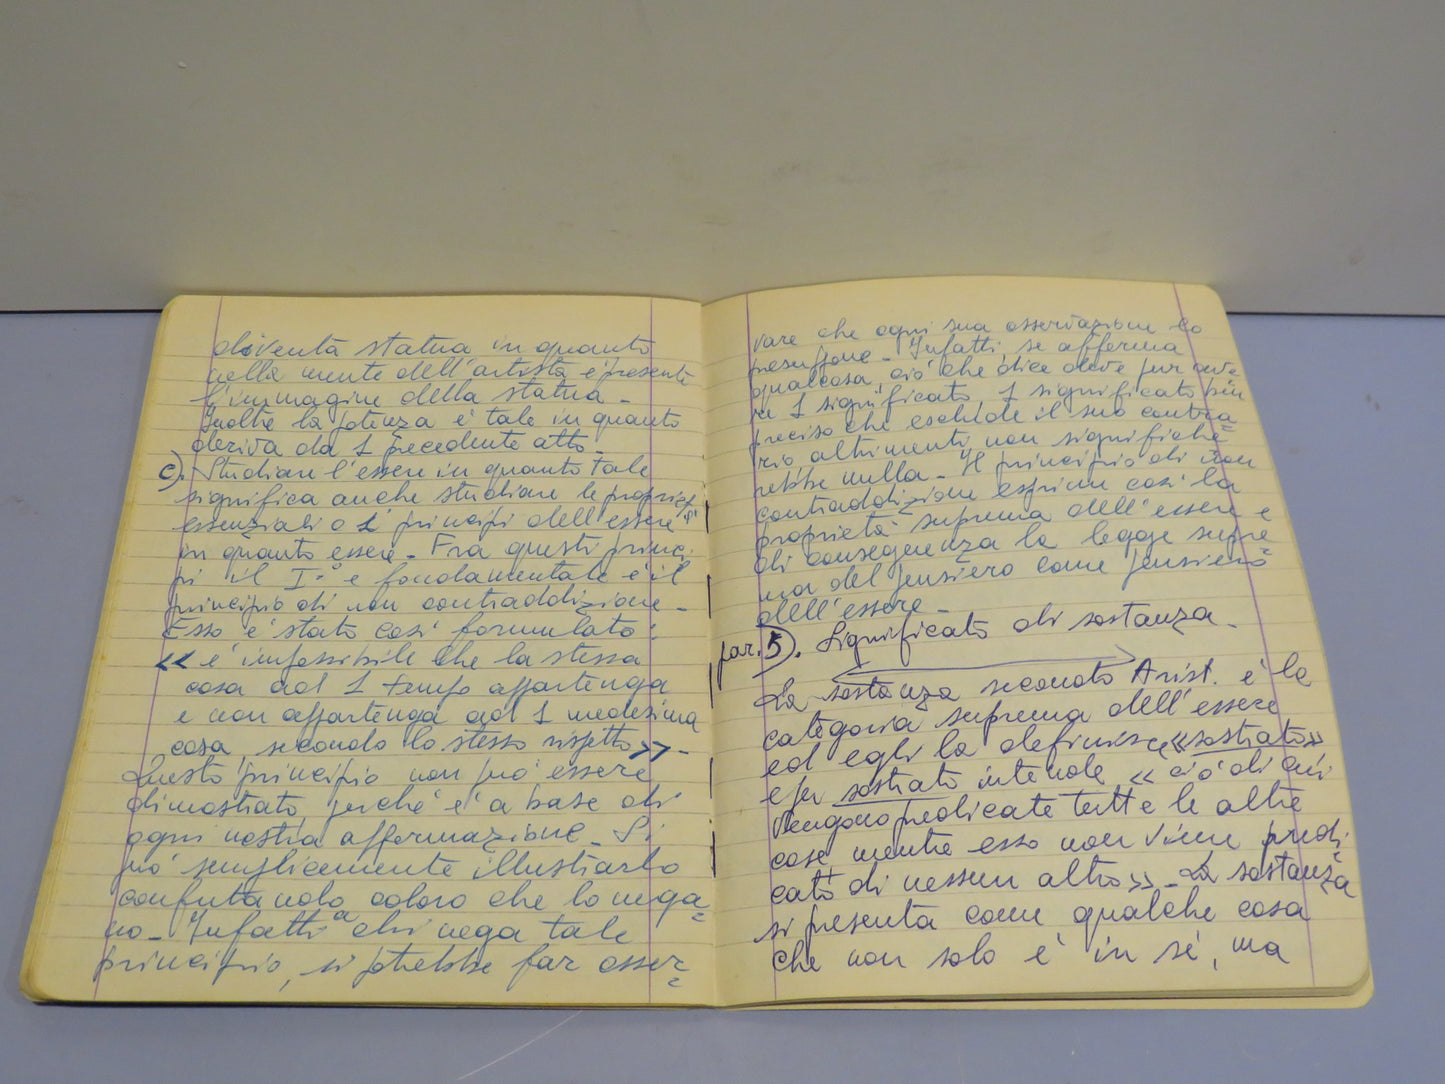 diventa statua in quanto
nella mente dell'artista è presente
l'immagine della statua -
Inoltre la potenza è tale in quanto
deriva da 1 precedente atto -
c). Studiare l'essere in quanto tale
significa anche studiare le proprietà
essenziali e i principi dell'essere
in quanto essere - Fra questi princi-
pi il I° e fondamentale è il
principio di non contraddizione -
Esso è stato così formulato:
<< è impossibile che la stessa
cosa ad 1 tempo appartenga
e non appartenga ad 1 medesima
cosa, secondo lo stesso rispetto >> -
Questo principio non può essere
dimostrato, perché è a base di
ogni nostra affermazione - Si
può semplicemente illustrarlo
confutando coloro che lo nega=
no - Infatti a chi nega tale
principio, si potrebbe far osser=
vare che ogni sua osservazione lo
presuppone - Infatti, se afferma
qualcosa, ciò che dice deve pur ave=
re 1 significato, 1 significato più
preciso che esclude il suo contra=
rio altrimenti non significhe=
rebbe nulla - Il principio di non
contraddizione esprime così la
proprietà suprema dell'essere e
di conseguenza la legge supre=
ma del pensiero come pensiero
dell'essere -
par. 5). Significato di sostanza -
La sostanza secondo Arist. è la
categoria suprema dell'essere
ed egli la definisce << sostrato >>
e per sostrato intende << ciò di cui
vengono predicate tutte le altre
cose mentre esso non viene predi-
cato di nessun altro >> - La sostanza
si presenta come qualche cosa
che non solo è in sé, ma